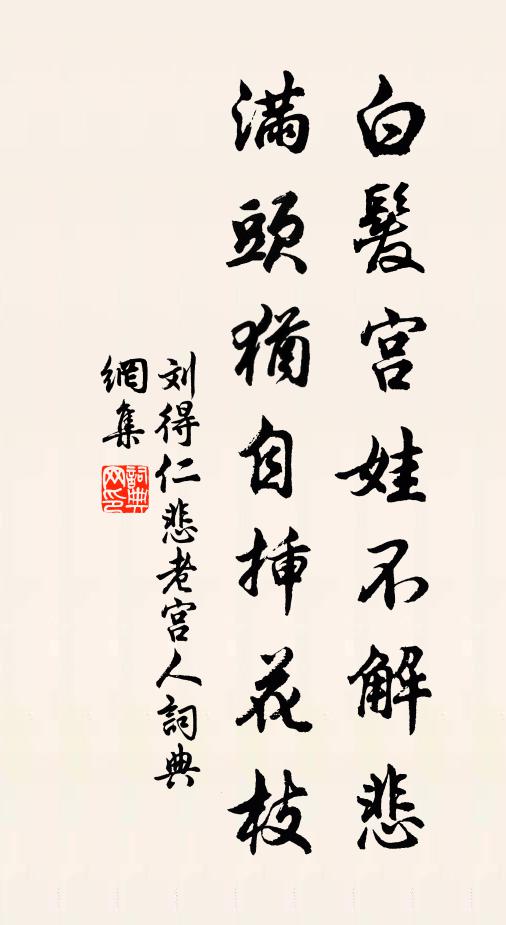 白髮宮娃不解悲
滿頭猶自插花枝
刘得仁悲老宮人詞典
網集
詞典
网印